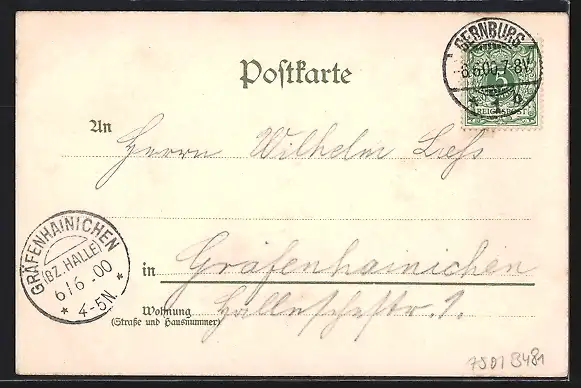 BERNBURG
-6.6.00.7-8V.
* 1 b
5
REICHSPOST
Postkarte
An Herrn Wilhelm Leß
GRÄFENHAINICHEN
(BZ. HALLE)
6/6.00
* 4-5N. *
in Gräfenhainichen
Wohnung Halleschestr. 1.
(Straße und Hausnummer)
7501 B481